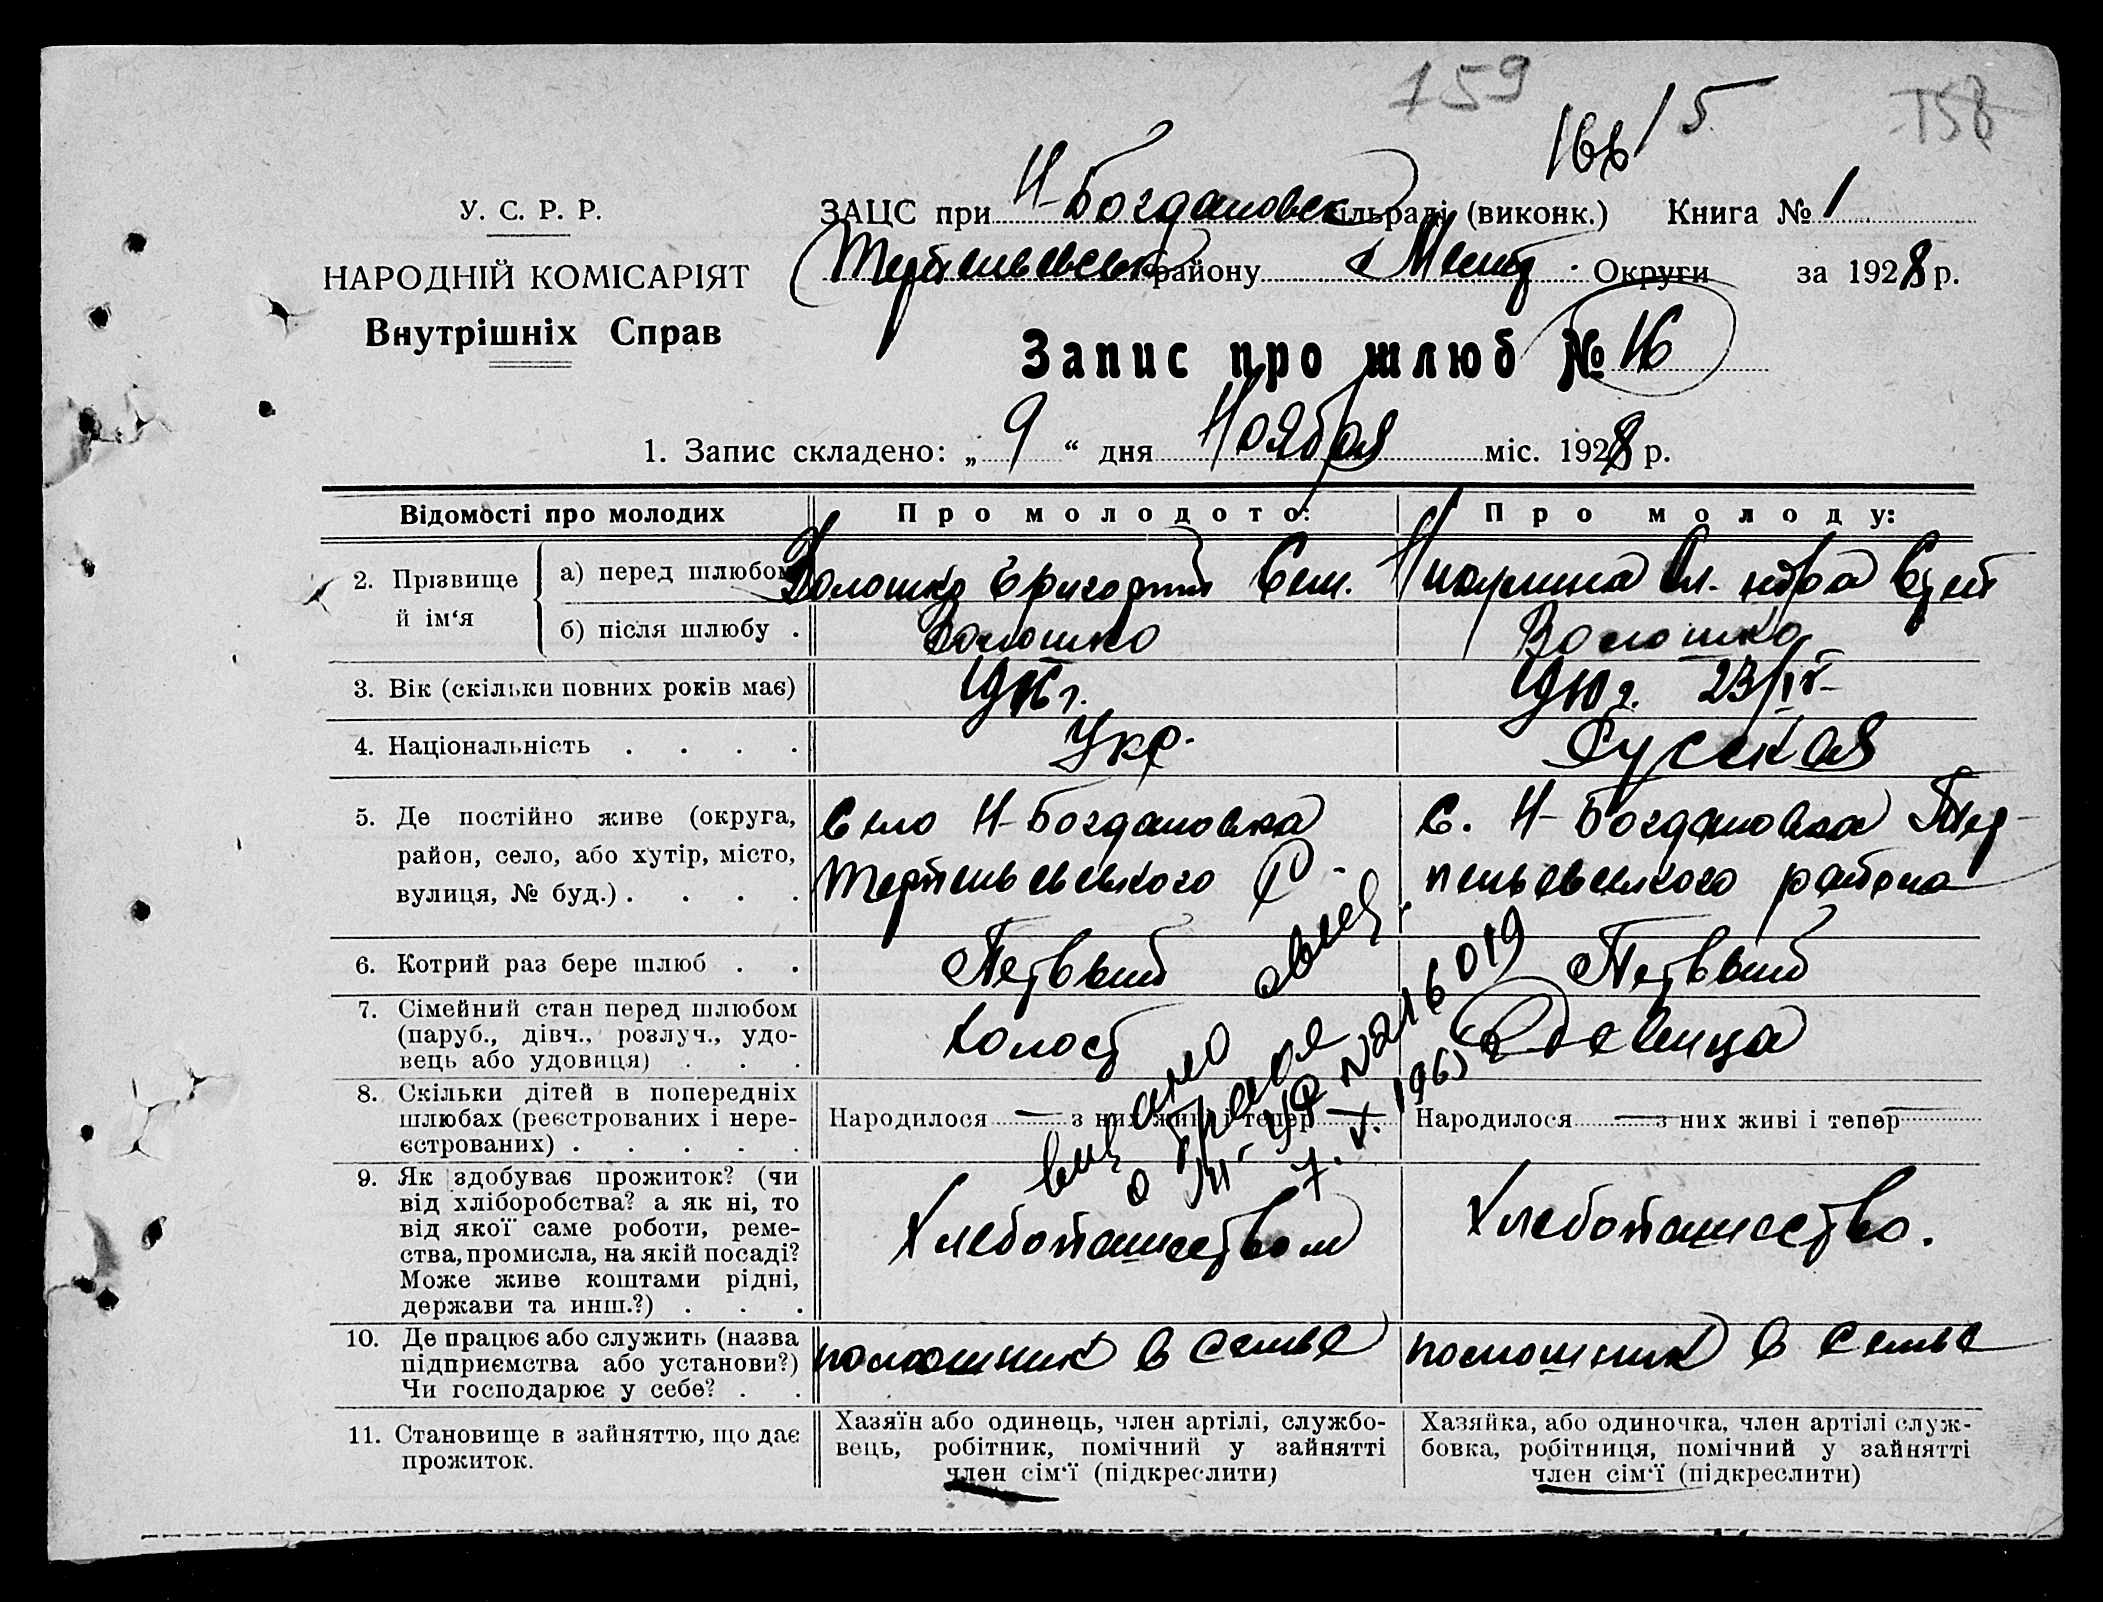 159
158
166/5
У. С. Р. Р.
ЗАЦС при Н-Богдановск сільраді (виконк.) Книга № 1
НАРОДНІЙ КОМІСАРІЯТ
Терпеньевськ району Мелит. Округи за 1928 р.
Внутрішніх Справ
Запис про шлюб № 16
1. Запис складено: „9“ дня Ноября міс. 1928 р.
Відомості про молодих
Про молодого:
Про молоду:
2. Прізвище й ім'я
а) перед шлюбом
Волошко Григорий Сем.
б) після шлюбу .
Волошко
Волошко
3. Вік (скільки повних років має)
19
19 23/IV
4. Національність . . . .
Укр.
Русская
5. Де постійно живе (округа,
район, село, або хутір, місто,
вулиця, № буд.) . . . .
Село Н-Богдановка
Терпеньевського Р-
С. Н-Богдановка Тер-
пеньевського района
6. Котрий раз бере шлюб . .
Первый
Первый
7. Сімейний стан перед шлюбом
(паруб., дівч., розлуч., удо-
вець або удовиця) . . .
Холост
Девица
8. Скільки дітей в попередніх
шлюбах (реєстрованих і нере-
єстрованих) . . . . .
Народилося — з них живі і тепер —
Народилося — з них живі і тепер —
выдано свид.
о браке
III-УР №216019
7.V.1963
9. Як здобуває прожиток? (чи
від хліборобства? а як ні, то
від якої саме роботи, реме-
ства, промисла, на якій посаді?
Може живе коштами рідні,
держави та инш.?) . . .
Хлебопашеством
Хлебопашество.
10. Де працює або служить (назва
підприємства або установи?)
Чи господарює у себе? . .
помошник в семье
помошник в семье
11. Становище в зайняттю, що дає
прожиток.
Хазяїн або одинець, член артілі, службо-
вець, робітник, помічний у зайнятті
член сім'ї (підкреслити)
Хазяйка, або одиночка, член артілі служ-
бовка, робітниця, помічний у зайнятті
член сім'ї (підкреслити)